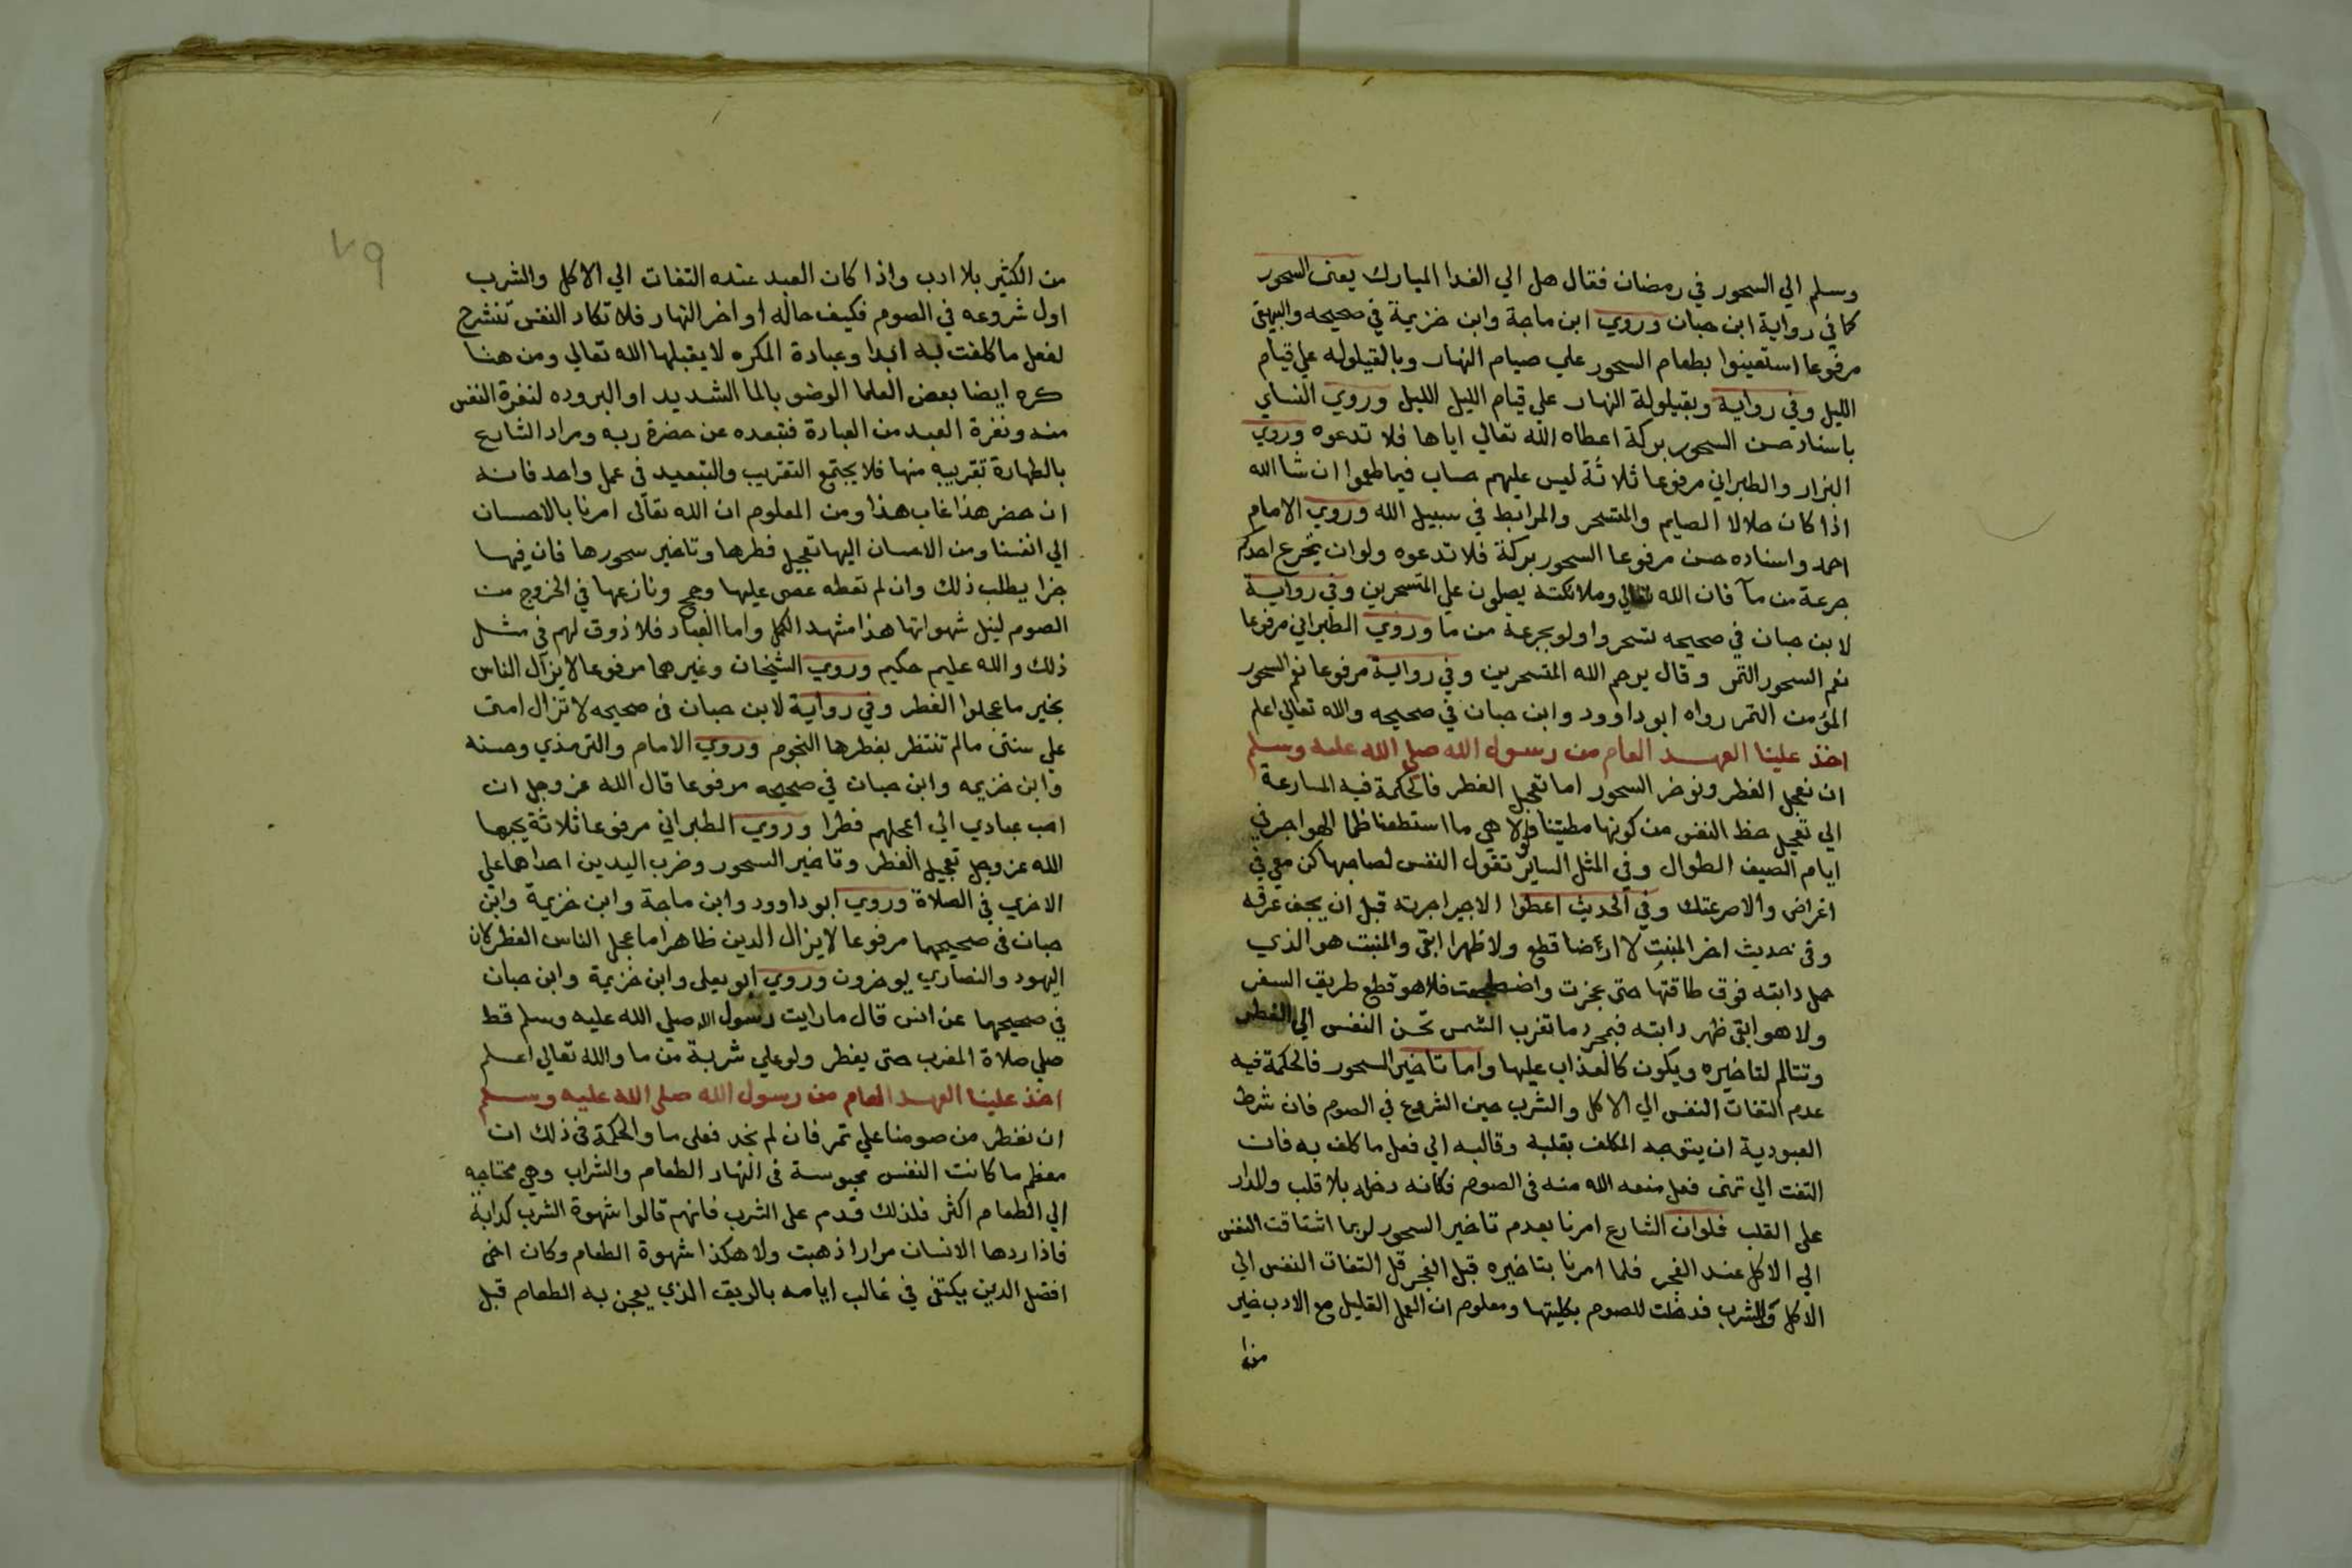 وسلم الي السحور في رمضان فقال هل الي الغدا المبارك يعنى السحور
كما في رواية ابن حبان وروي ابن ماجة وابن خزيمة في صحيحه والبيهقي
مرفوعا استعينوا بطعام السحور علي صيام النهار وبالقيلوله علي قيام
الليل وفي رواية وبقيلولة النهار علي قيام الليل الليل وروي النساي
باسناد حسن السحور بركة اعطاه الله تعالي اياها فلا تدعوه وروي
البزار والطبراني مرفوعا ثلاثة ليس عليهم حساب فيما طعموا ان شا الله
اذا كان حلالا الصايم والمتسحر والمرابط في سبيل الله وروي الامام
احمد واسناده حسن مرفوعا السحور بركة فلا تدعوه ولو ان يتجرع احدكم
جرعة من مآ فان الله تعالي وملائكته يصلون علي المتسحرين وفي رواية
لابن حبان في صحيحه تسحروا ولو بجرعة من ما وروي الطبراني مرفوعا
نعم السحور التمر وقال يرحم الله المتسحرين وفي رواية مرفوعا نعم السحور
المؤمن التمر رواه ابو داوود وابن حبان في صحيحه والله تعالي اعلم
اخذ علينا العهد العام من رسول الله صلي الله عليه وسلم
ان نعجل الفطر ونوخر السحور اما تعجل الفطر فالحكمة فيه المسارعة
الي تعجيل حظ النفس من كونها مطيتنا ولولا هي ما استطعنا ظما الهواجر في
ايام الصيف الطوال وفي المثل الساير تقول النفس لصاحبها كن معي في
اغراضي والا صرعتك وفي الحديث اعطوا الاجير اجرته قبل ان يجف عرقه
وفى حديث اخر المنبت لا ارضا قطع ولا ظهرا ابقى والمنبت هو الذي
حمل دابته فوق طاقتها حتى عجزت واضطجعت فلا هو قطع طريق السفر
ولا هو ابقى ظهر دابته فبمجرد ما تغرب الشمس تحن النفس الي الفطر
وتتالم لتاخيره ويكون كالعذاب عليها واما تاخير السحور فالحكمة فيه
عدم التفات النفس الي الاكل والشرب حين الشروع في الصوم فان شرط
العبودية ان يتوجه المكلف بقلبه وقالبه الي فعل ما كلف به فان
التفت الي تمنى فعل منعه الله منه فى الصوم فكانه دخله بلا قلب والمدار
على القلب فلو ان الشارع امرنا بعدم تاخير السحور لربما اشتاقت النفس
الي الاكل عند الفجر فلما امرنا بتاخيره قبل الفجر قل التفات النفس الي
الاكل والشرب فدخلت للصوم بكليتها ومعلوم ان العمل القليل مع الادب خير
من
من الكثير بلا ادب واذا كان العبد عنده التفات الي الاكل والشرب
اول شروعه في الصوم فكيف حاله اواخر النهار فلا تكاد النفس تنشرح
لفعل ما كلفت به ابدا وعبادة المكره لا يقبلها الله تعالي ومن هنا
كره ايضا بعض العلما الوضو بالما الشديد او البروده لنفرة النفس
منه ونفرة العبد من العبادة فتبعده عن حضرة ربه ومراد الشارع
بالطهارة تقريبه منها فلا يجتمع التقريب والتبعيد في عمل واحد فانه
ان حضر هذا غاب هذا ومن المعلوم ان الله تعالى امرنا بالاحسان
الي انفسنا ومن الاحسان اليها تعجيل فطرها وتاخير سحورها فان فيها
جزا يطلب ذلك وان لم تعطه عصى عليها وحج ونازعها في الخروج من
الصوم لنيل شهواتها هذا مشهد الكمل واما العباد فلا ذوق لهم فى مثل
ذلك والله عليم حكيم وروي الشيخان وغيرهما مرفوعا لا يزال الناس
بخير ما عجلوا الفطر وفي رواية لابن حبان فى صحيحه لا تزال امتى
على سنتى ما لم تنتظر بفطرها النجوم وروي الامام والترمذي وحسنه
وابن خزيمه وابن حبان في صحيحه مرفوعا قال الله عز وجل ان
احب عبادي الي اعجلهم فطرا وروي الطبراني مرفوعا ثلاثة يحبها
الله عز وجل تعجيل الفطر وتاخير السحور وضرب اليدين احداهما على
الاخري في الصلاة وروي ابو داوود وابن ماجة وابن خزيمة وابن
حبان فى صحيحهما مرفوعا لا يزال الدين ظاهرا ما عجل الناس الفطر لان
اليهود والنصاري يوخرون وروي ابو يعلى وابن خزيمة وابن حبان
في صحيحهما عن انس قال ما رايت رسول الله صلي الله عليه وسلم قط
صلي صلاة المغرب حتى يفطر ولو علي شربة من ما والله تعالي اعلم
اخذ علينا العهد العام من رسول الله صلى الله عليه وسلم
ان نفطر من صومنا علي تمر فان لم نجد فعلى ما والحكمة فى ذلك ان
معظم ما كانت النفس محبوسة فى النهار الطعام والشراب وهي محتاجه
الي الطعام اكثر فلذلك قدم على الشرب فانهم قالوا شهوة الشرب كدابة
فاذا ردها الانسان مرارا ذهبت ولا هكذا شهوة الطعام وكان اخى
افضل الدين يكتفى في غالب ايامه بالريق الذي يعجن به الطعام قبل